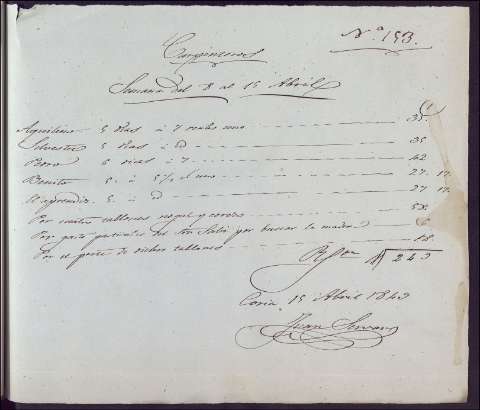 Nº 153.
Carpinteros
Semana del 8 al 15 Abril
Aquilino 5 dias à 7 reales uno 35.
Silvestre 5 dias à id 35
Poro 6 dias à 7 42
Benito 5. à 5½ uno 27. 17.
El aprendiz 5. à id 27 17.
Por tablones nogal y 58.
Por gasto de por buscar la madera 6
Por el porte de dichos tablones 18.
Rs von 249
Coria 15 Abril 1849
Juan